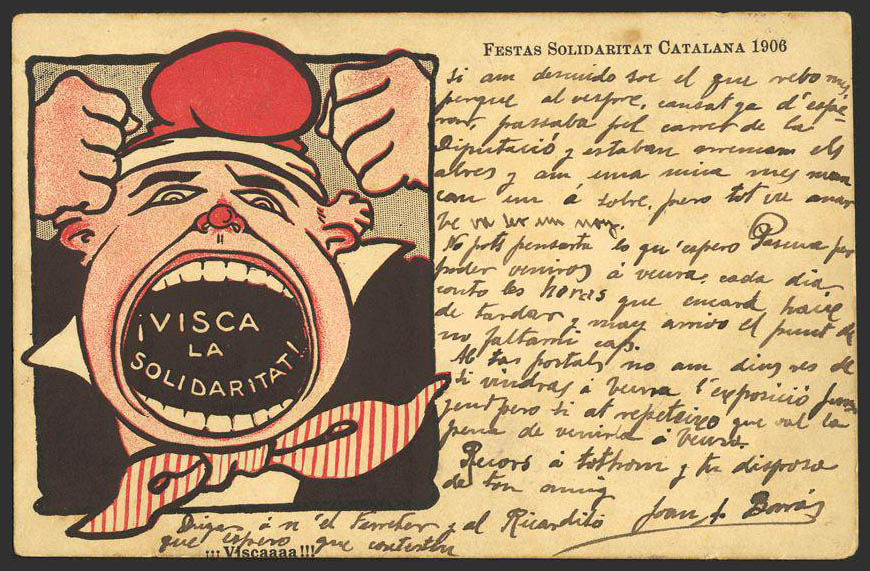 FESTAS SOLIDARITAT CATALANA 1906
¡VISCA
LA
SOLIDARITAT!
Si am descuido soc el que rebo mes,
perque al vespre, cansat ja d'espe-
rar, passaba pel carrer de la
Diputació y estaban arrencan els
abres y am una mica mes man
can un á sobre, pero tot va anar
be
No pots pensarte lo qu'espero Pascua per
poder venirvos á veura, cada dia
conto las horas que encara haig
de tardar y may arrivo el punt de
no faltarni cap.
A las postals no am dius res de
si vindras á veura l'exposició
pero si at repeteixo que val la
pena de venirla á veura.
Recors á tothom y tu disposa
de ton amig
Joan Borrás
Digas á n'el Ferreter y al Ricardito
que espero que contestin
!!!Viscaaaa!!!